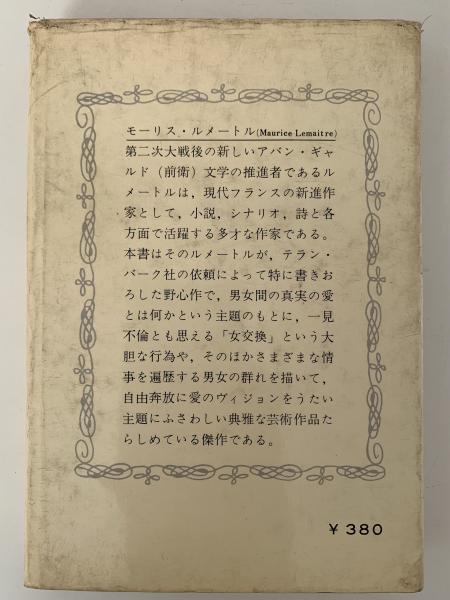 モーリス・ルメートル(Maurice Lemaitre)
第二次大戦後の新しいアバン・ギャ
ルド（前衛）文学の推進者であるル
メートルは，現代フランスの新進作
家として，小説，シナリオ，詩と各
方面で活躍する多才な作家である。
本書はそのルメートルが，テラン・
バーク社の依頼によって特に書きお
ろした野心作で，男女間の真実の愛
とは何かという主題のもとに，一見
不倫とも思える「女交換」という大
胆な行為や，そのほかさまざまな情
事を遍歴する男女の群れを描いて，
自由奔放に愛のヴィジョンをうたい
主題にふさわしい典雅な芸術作品た
らしめている傑作である。
¥380